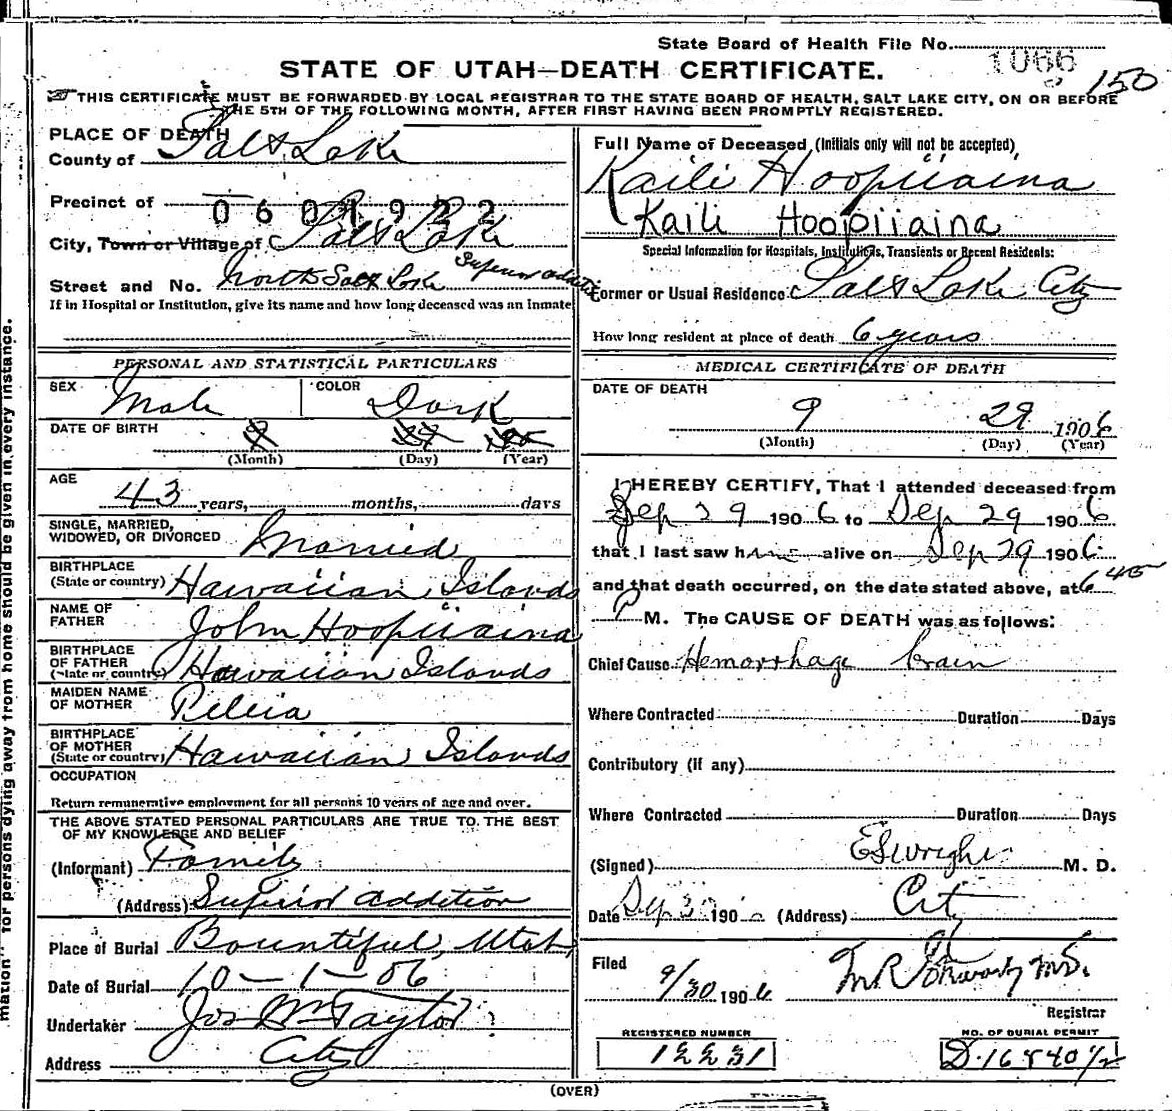 State Board of Health File No. 1066
150
STATE OF UTAH—DEATH CERTIFICATE.
THIS CERTIFICATE MUST BE FORWARDED BY LOCAL REGISTRAR TO THE STATE BOARD OF HEALTH, SALT LAKE CITY, ON OR BEFORE
THE 5TH OF THE FOLLOWING MONTH, AFTER FIRST HAVING BEEN PROMPTLY REGISTERED.
PLACE OF DEATH
County of Salt Lake
Precinct of
0601922
City, Town or Village of Salt Lake
Street and No. North Salt Lake Superior Addition
If in Hospital or Institution, give its name and how long deceased was an inmate
PERSONAL AND STATISTICAL PARTICULARS
SEX Male COLOR Dark
DATE OF BIRTH
(Month) (Day) (Year)
AGE
43 years, months, days
SINGLE, MARRIED,
WIDOWED, OR DIVORCED Married
BIRTHPLACE
(State or country) Hawaiian Islands
NAME OF
FATHER John Hoopiiaina
BIRTHPLACE
OF FATHER
(State or country) Hawaiian Islands
MAIDEN NAME
OF MOTHER
BIRTHPLACE
OF MOTHER
(State or country) Hawaiian Islands
OCCUPATION
Return remunerative employment for all persons 10 years of age and over.
THE ABOVE STATED PERSONAL PARTICULARS ARE TRUE TO THE BEST
OF MY KNOWLEDGE AND BELIEF
(Informant) Family
(Address) Superior Addition
Place of Burial Bountiful, Utah,
Date of Burial 10-1-06
Undertaker Jos Wm Taylor
Address City
Full Name of Deceased (Initials only will not be accepted)
Kaili Hoopiiaina
Kaili Hoopiiaina
Special Information for Hospitals, Institutions, Transients or Recent Residents:
Former or Usual Residence Salt Lake City
How long resident at place of death 6 years
MEDICAL CERTIFICATE OF DEATH
DATE OF DEATH
9 29 1906
(Month) (Day) (Year)
I HEREBY CERTIFY, That I attended deceased from
Sep 29 1906 to Sep 29 1906
that I last saw him alive on Sep 29 1906
and that death occurred, on the date stated above, at 6 45
P M. The CAUSE OF DEATH was as follows:
Chief Cause Hemorrhage brain
Where Contracted Duration Days
Contributory (if any)
Where Contracted Duration Days
(Signed) E S Wright M. D.
Date Sep 30 190 (Address) City
Filed
9/30 1906 M.D.
Registrar
REGISTERED NUMBER NO. OF BURIAL PERMIT
12231 D.16840 1/2
(OVER)
for persons dying away from home should be given in every instance.
mation"